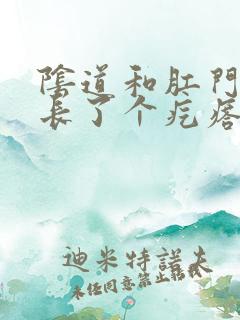 陰道和肛門
長了个疙瘩
迪米特諾夫
未经同意禁止转载